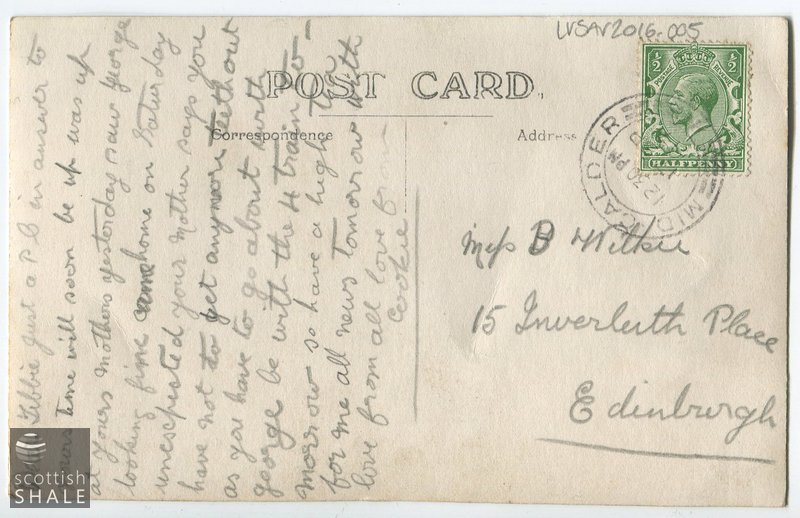 LVSAV2016.005
POST CARD.
Correspondence
Address
½ ½
HALFPENNY
MID CALDER
12.20 PM
Miss B Wilkie
15 Inverleith Place
Edinburgh
Tibbie Just a P C in answer to
yours time will soon be up was up
at yours Mothers yesterday saw George
looking fine came home on Saturday
unexspected your Mother says you
have not to get anymore teeth out
as you have to go about with
george be with the 4 train to-
morrow so have a high tea
for me all news tomorrow with
love from all love from
Cookie
scottish
SHALE